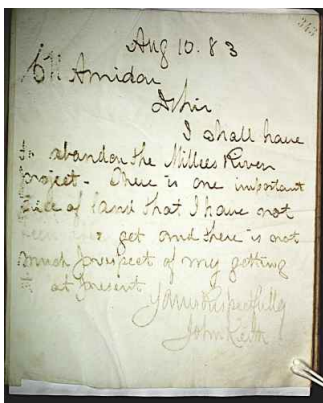 343
Aug 10. 83
Amidon
D Sir
I shall have
to abandon the Millers River
project - There is one important
piece of land that I have not
been get and there is not
much prospect of my getting
it at present
Yours Respectfully
John Keith